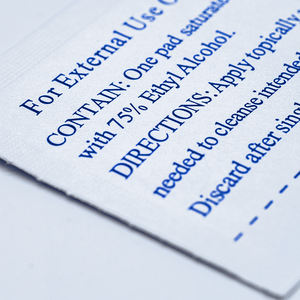 For External Use
CONTAIN: One pad saturate
with 75% Ethyl Alcohol.
DIRECTIONS: Apply topically
needed to cleanse intended
Discard after